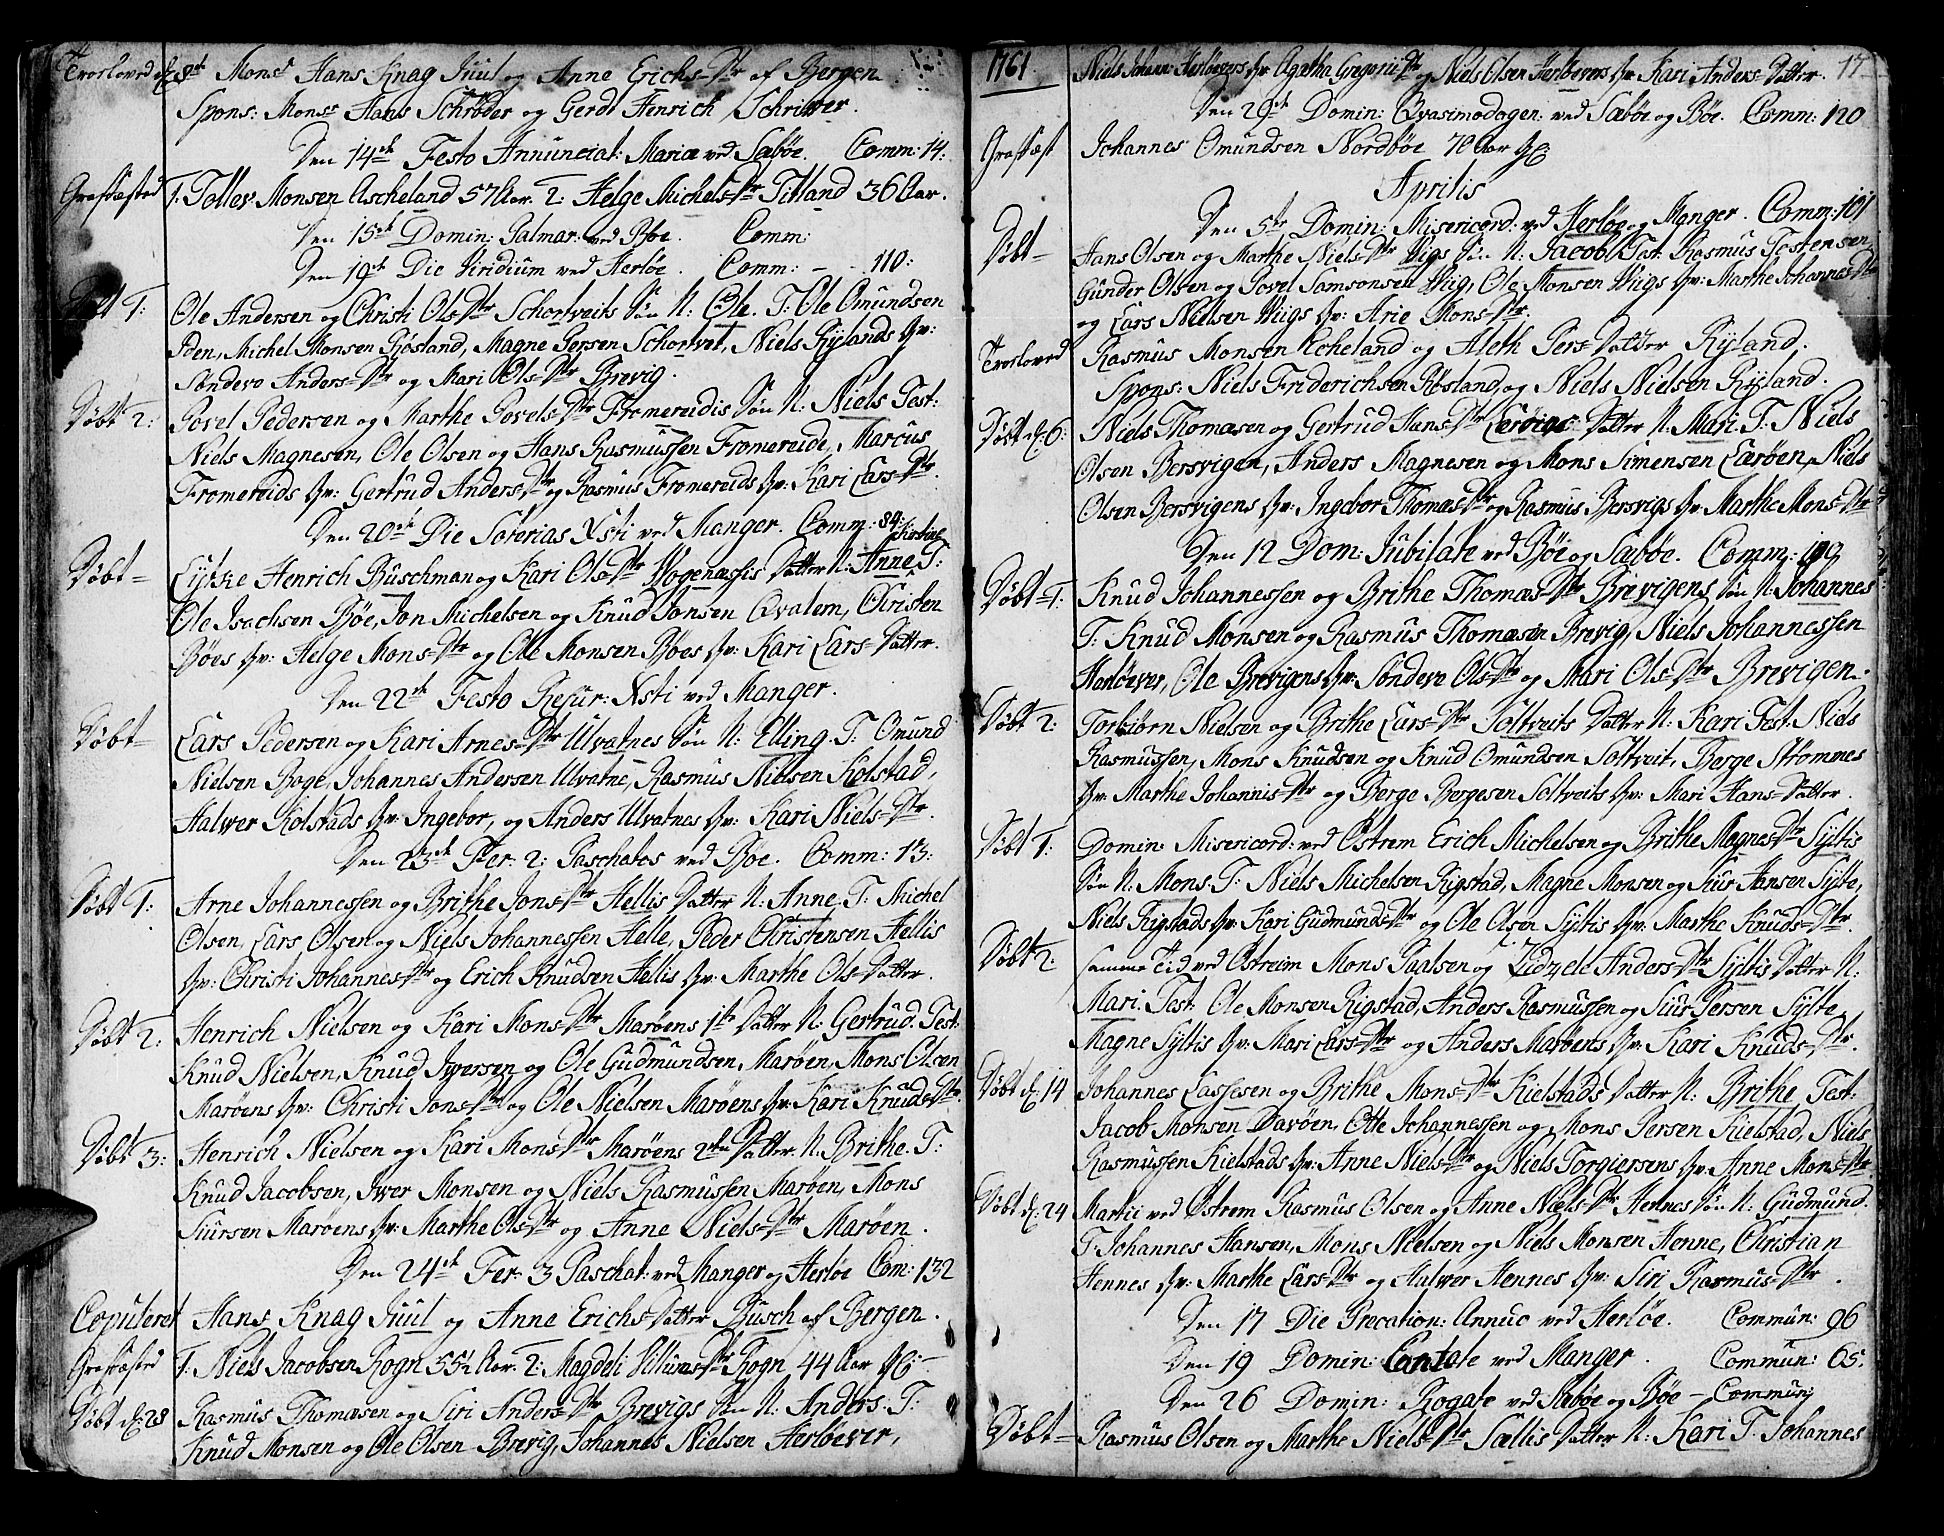 Troeloved d. 8de Monsr Hans Knag Juul og Anne Erichs Dtr af Bergen
Spons: Monsr Hans Schröder og Gerdt Henrich Schriwer.
Den 14de Festo Annunciat: Mariæ ved Sæbøe. Comm: 14:
Grafæsted 1. Tollev Monsen Ascheland 57 Aar. 2: Helge Michels Dtr Titland 36 Aar.
Den 15de Domin: Palmar: ved Bøe. Comm:
Den 19de Die Viridium ved Herløe. Comm: - - 110:
Døbt 1: Ole Andersen og Christi Ols Dtr Schortveits Søn N: Ole. T: Ole Omundsen
Øen, Michel Monsen Røsland, Magne Persen Schortvet, Niels Rylands Qv:
Søndevo Anders Dtr og Mari Ols Dtr Brevig.
Døbt 2: Povel Pedersen og Marthe Povels Dtr Fromereidis Søn N: Niels Test:
Niels Magnesen, Ole Olsen og Hans Rasmussen Fromereide, Marcus
Fromereids Qv: Gertrud Anders Dtr og Rasmus Fromereids Qv: Kari Lars Dtr.
Den 20de Die Soterias Xsti ved Manger. Comm: 84:
Døbt Lykke Henrich Buschman og Kari Ols Dtr Wogenæssis Datter N: Anne Kirstine T:
Ole Isachsen Bøe, Jon Michelsen og Knud Jonsen Qvalem, Christen
Bøes Qv: Helge Mons Dtr og Ole Monsen Bøes Qv: Kari Lars Datter.
Den 22de Festo Resur: Xsti ved Manger.
Døbt Lars Pedersen og Kari Arnes Dtr Ulvatnes Søn N: Elling. T: Omund
Nielsen Boge, Johannes Andersen Ulvatne, Rasmus Nielsen Kolstad,
Halwer Kolstads Qv: Ingebor, og Anders Ulvatnes Qv: Kari Niels Dtr.
Den 23de Fer: 2: Paschatos ved Bøe. Comm: 13:
Døbt 1: Arne Johannessen og Brithe Jons Dtr Hellis Datter N: Anne. T: Michel
Olsen, Lars Olsen og Niels Johannessen Helle, Peder Christensen Hellis
Qv: Christi Johannes Dtr og Erich Knudsen Hellis Qv: Marthe Ols Datter.
Døbt 2: Henrich Nielsen og Kari Mons Dtr Marøens 1te Datter N: Gertrud. Test:
Knud Nielsen, Knud Iversen og Ole Gudmundsen Marøen, Mons Olsen
Marøens Qv: Christi Jons Dtr og Ole Nielsen Marøens Qv: Kari Knuds Dtr.
Døbt 3: Henrich Nielsen og Kari Mons Dtr Marøens 2den Datter N: Brithe. T:
Knud Jacobsen, Iwer Monsen og Niels Rasmussen Marøen, Mons
Siursen Marøens Qv: Marthe Ols Dtr og Anne Niels Dtr Marøen.
Den 24de Fer: 3 Paschat: ved Manger og Herløe Com: 132
Copuleret Hans Knag Juul og Anne Erichs Datter Busch af Bergen.
Grafæsted 1. Niels Jacobsen Rogn 55½ Aar. 2: Magdeli Villums Dtr Rogn 44 Aar
Døbt d: 28 Rasmus Thomæsen og Siri Anders Dtr Brevigs Søn N: Anders. T:
Knud Monsen og Ole Olsen Brevig, Johannes Nielsen Herløever,
1761
Niels Johann: Herløevers Qv: Agatha Gregorii Dtr og Niels Olsen Herloevers Qv: Kari Anders Datter. 17
Den 29de Domin: Qvasimodogen: ved Sæbøe og Bøe. Comm: 120
Grafæst Johannes Omundsen Nordbøe 70 Aar
Aprilis
Den 5te Domin: Misericord: ved Herløe og Manger. Comm: 101
Døbt Hans Olsen og Marthe Niels Dtr Wigs Søn N: Jacob. Test: Rasmus Tostensen,
Gunder Olsen og Povel Samsonsen Wiig, Ole Monsen Wiigs Qv: Marthe Johannes Dtr
og Lars Nielsen Wiigs Qv: Arie Mons Dtr.
Troeloved Rasmus Monsen Echeland og Aleth Pers Datter Ryland.
Spons: Niels Friderichsen Røsland, og Niels Nielsen Ryland.
Døbt d: 6: Niels Thomæsen og Gertrud Hans Dtr Lerøigs Datter N: Mari T: Niels
Olsen Bersvigen, Anders Magnesen og Mons Simensen Lærøen, Niels
Olsen Bersvigens Qv: Ingebor Thomæs Dtr og Rasmus Bersvigs Qv: Marthe Mons Dtr
Den 12 Dom: Jubilate ved Bøe og Sæbøe. Comm: 109
Døbt 1: Knud Johannessen og Brithe Thomæs Dtr Brevigens Søn N: Johannes
T: Knud Monsen og Rasmus Thomæsen Brevig, Niels Johannessen
Herløever, Ole Brevigens Qv: Søndevo Ols Dtr og Mari Ols Dtr Brevigen.
Døbt 2: Torbiørn Nielsen og Brithe Lars Dtr Soltveits Datter N: Kari Test: Niels
Rasmussen, Mons Knudsen og Knud Omundsen Soltveit, Berge Strømmes
Qv: Marthe Johannis Dtr og Berge Bergesen Soltveits Qv: Mari Hans Datter.
Døbt 1: Domin: Misericord: ved Østrem Erich Michelsen og Brithe Magnes Dtr Syltis
Søn N: Mons. T: Niels Michelsen Rigstad, Magne Monsen og Siur Hansen Sylte,
Niels Rigstads Qv: Kari Gudmunds Dtr og Ole Olsen Syltis Qv: Marthe Knuds Dtr.
Døbt 2: samme Tid ved Østreim Mons Paalsen og Zidzele Anders Dtr Syltis Datter N:
Mari. Test: Ole Monsen Rigstad, Anders Rasmussen og Siur Persen Sylte,
Magne Syltis Qv: Mari Lars Dtr og Anders Marøens Qv: Kari Knuds Dtr.
Døbt d: 14 Johannes Lassesen og Brithe Mons Dtr Kielstads Datter N: Brithe, Test:
Jacob Monsen Davøen, Otte Johannessen og Mons Persen Kielstad, Niels
Rasmussen Kielstads Qv: Anne Niels Dtr og Niels Torgiersens Qv: Anne Mons Dtr
Døbt d: 24 Martii ved Østrem Rasmus Olsen og Anne Niels Dtr Hennes Søn N: Gudmund.
T: Johannes Hansen, Mons Nielsen og Niels Monsen Henne, Christian
Hennes Qv: Marthe Lars Dtr og Halwer Hennes Qv: Siri Rasmus Dtr.
Den 17 Die Precation: Annuo ved Herløe. Commun: 96
Den 19 Domin: Cantate ved Manger. Commun: 65:
Den 26 Domin: Rogate ved Sæbøe og Bøe – Commun:
Døbt Rasmus Olsen og Marthe Niels Dtr Sællis Datter N: Kari T: Johannes